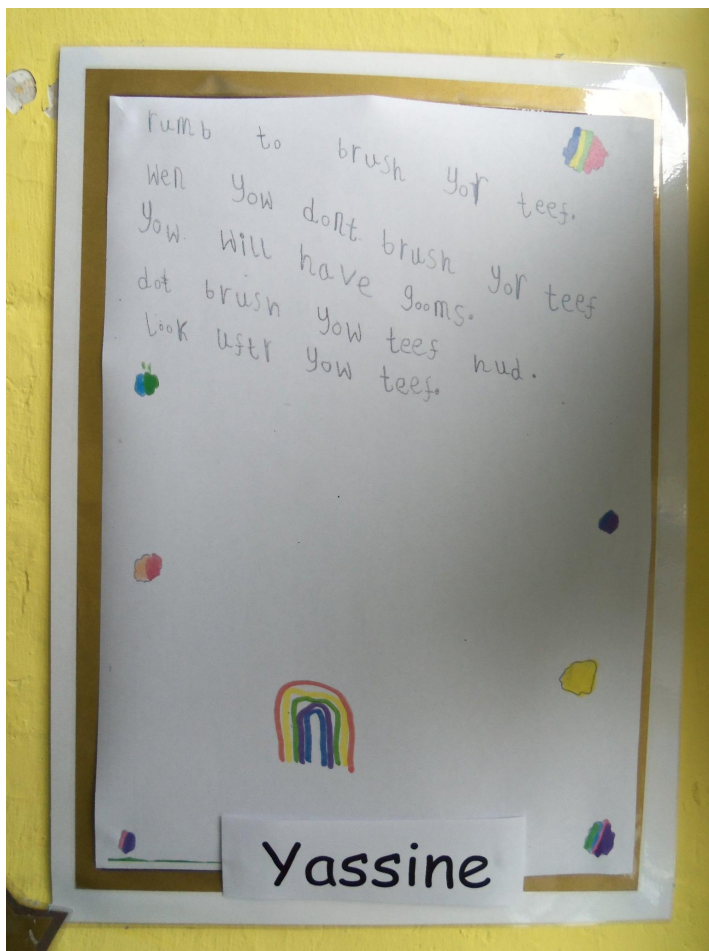 rumb to brush yor teef.
wen yow dont brush yor teef
yow will have gooms.
dot brush yow teef hud.
look uftr yow teef.
Yassine